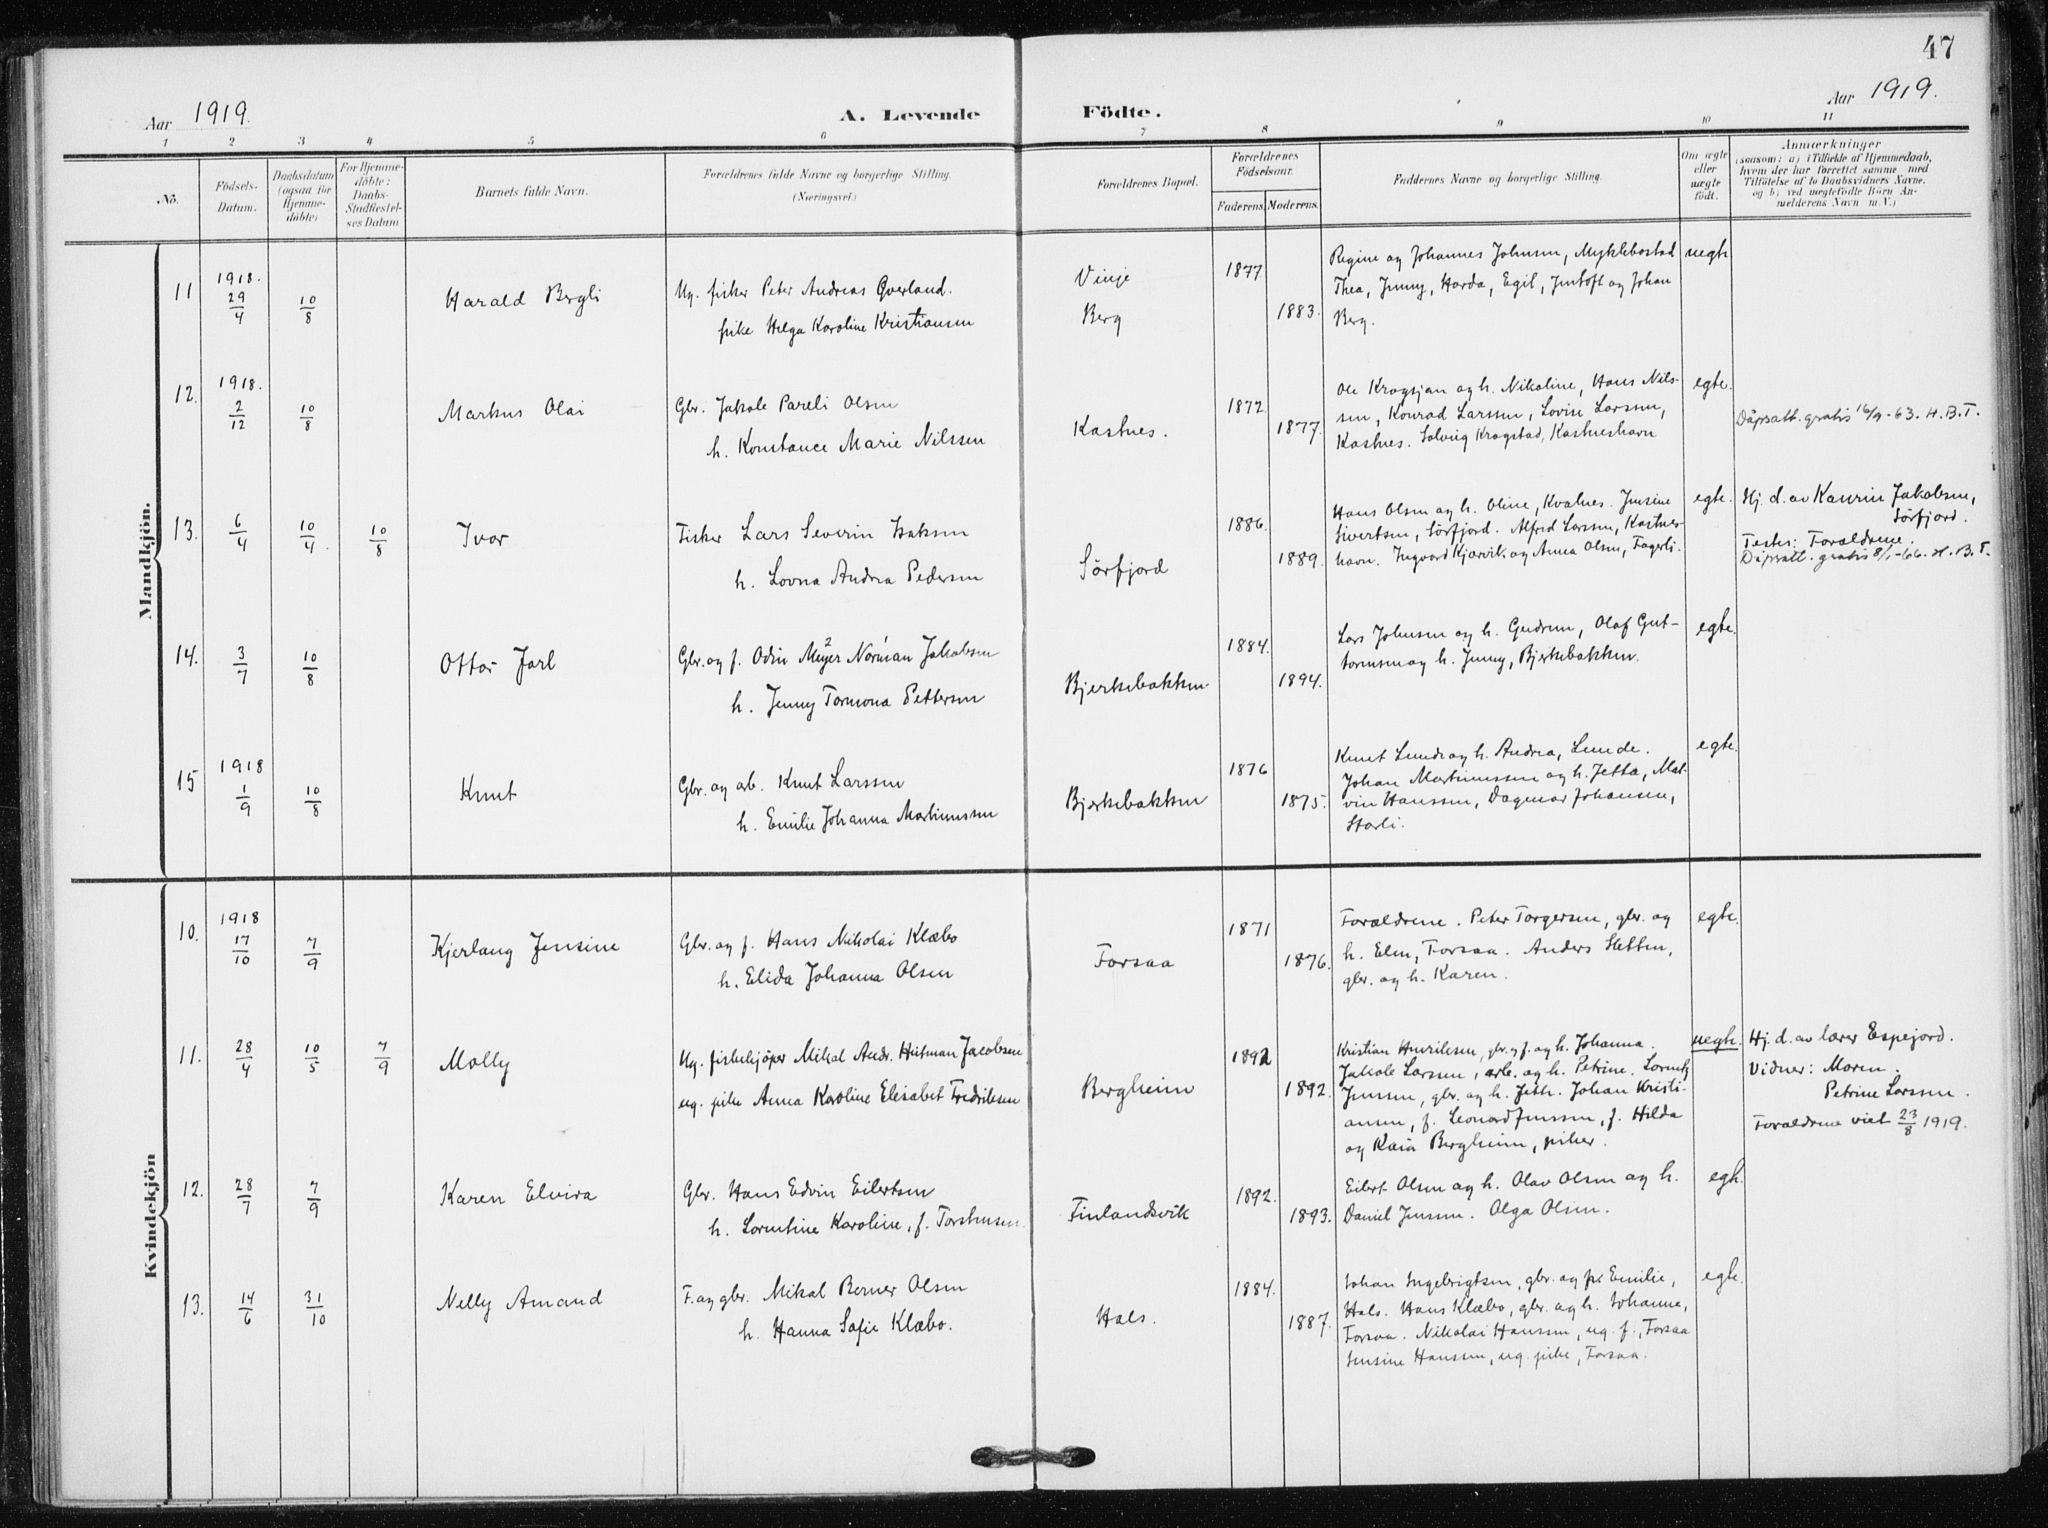 47
Aar 1919.
A. Levende Födte.
Aar 1919.
1 2 3 4 5 6 7 8 9 10 11
No.
Födsels-Datum.
Daabsdatum (ogsaa for Hjemmedöbte)
For Hjemmedöbte: Daabs-Stadfæstelses Datum
Barnets fulde Navn.
Forældrenes fulde Navne og borgerlige Stilling. (Næringsvei.)
Forældrenes Bopæl.
Forældrenes Födselsaar.
Faderens. Moderens.
Faddernes Navne og borgerlige Stilling.
Om ægte eller uægte födt.
Anmærkninger
(saasom: a) i Tilfælde af Hjemmedaab,
hvem der har forrettet samme med
Tilföielse af to Daabsvidners Navne.
og b) ved uægtefödte Börn An-
melderens Navn m. V.)
Mandkjön.
11 1918. 29/4 10/8 Harald Bergli
Ug. fisker Peter Andreas Qverland.
pike Helga Karoline Kristiansen
Vinje
Berg
1877
1883.
Regine og Johannes Johnsen, Myklebostad
Thea, Jenny, Harda, Egil, og Johan
Berg.
uegte
12. 1918. 2/12 10/8 Markus Olai
Gbr. Jakob Pareli Olsen
h. Konstance Marie Nilssen
Kastnes.
1872
1877.
Ole Krogsjan og h. Nikoline, Hans Nils-
sen, Konrad Larssen, Lovise Larssen,
Kastnes. Solveig Krogstad, Kastneshavn
egte.
Dåpsatt. gratis 16/9-63. H.B.T.
13. 6/4 10/4. 10/8 Ivar
Fisker Lars Severin Isaksen
h. Lovna Andrea Pedersen
Sörfjord
1886.
1889.
Hans Olsen og h. Oline, Kvalnes. Jensine
Sivertsen, Sörfjord. Alfred Larssen, Kastnes-
havn. Ingvard Kjørvik og Anna Olsen, Fagerli.
egte.
Hj. d. av Kaurin Jakobsen,
Sörfjord.
Testes: Forældrene.
Dåpsatt. gratis 8/1-66. H.B.T.
14. 3/7 10/8 Ottar Jarl
Gbr. og f. Odin Meyer Norman Jakobsen
2
h. Jenny Tormona Pettersen
Bjerkebakken
1884.
1894.
Lars Johnsen og h. Gudrun, Olaf Gut-
tormsen og h. Jenny, Bjerkebakken.
egte.
15 1918 1/9 10/8 Knut
Gbr. og arb. Knut Larssen
h. Emilie Johanna Martinussen
Bjerkebakken
1876
1875.
Knut Lunde og h. Andrea, Lunde.
Johan Martinussen og h. Jetta, Mal-
vin Hanssen, Dagmar Johansen,
Storli.
egte.
Kvindekjön
10. 1918 17/10 7/9 Kjerlaug Jensine
Gbr. og f. Hans Nikolai Klæbo
h. Elida Johanna Olsen
Forsaa
1871
1876.
Forældrene. Peter Torgersen, gbr. og
h. Elen, Forsaa. Anders Sletten,
gbr. og h. Karen.
egte.
11. 28/4 10/5 7/9 Molly
Ug. fiskekjöper Mikal Andr. Hitman Jacobsen
ug. pike Anna Karoline Elisabet Fredriksen
Bergheim
1892
1892.
Kristian Henriksen, gbr. og f. og h. Johanna.
Jakob Larssen, arb. og h. Petrine. Lorentz
Jenssen, gbr. og h. Jeth. Johan Kristi-
ansen, f. Leonard Jenssen, f. Hilda
og Kaia Bergheim, piker.
uegte.
Hj. d. av lærer Espejord.
Vidner: Maren.
Petrine Larssen.
Forældrene viet 23/8 1919.
12. 28/7 7/9 Karen Elvira
Gbr. Hans Edvin Eilertsen
h. Lorentine Karoline, f. Torstensen.
Finlandsvik
1892.
1893.
Eilert Olsen og h. Olav Olsen og h.
Daniel Jenssen. Olga Olsen.
egte.
13. 14/6 31/10 Nelly Amand
F. og gbr. Mikal Berner Olsen
h. Hanna Sofie Klæbo.
Hals.
1884.
1887.
Johan Ingebrigtsen, gbr. og fr. Emilie,
Hals. Hans Klæbo, gbr. og h. Johanne,
Forsaa. Nikolai Hanssen, ug. f., Forsaa
Jensine Hanssen, ug. pike, Forsaa.
egte.